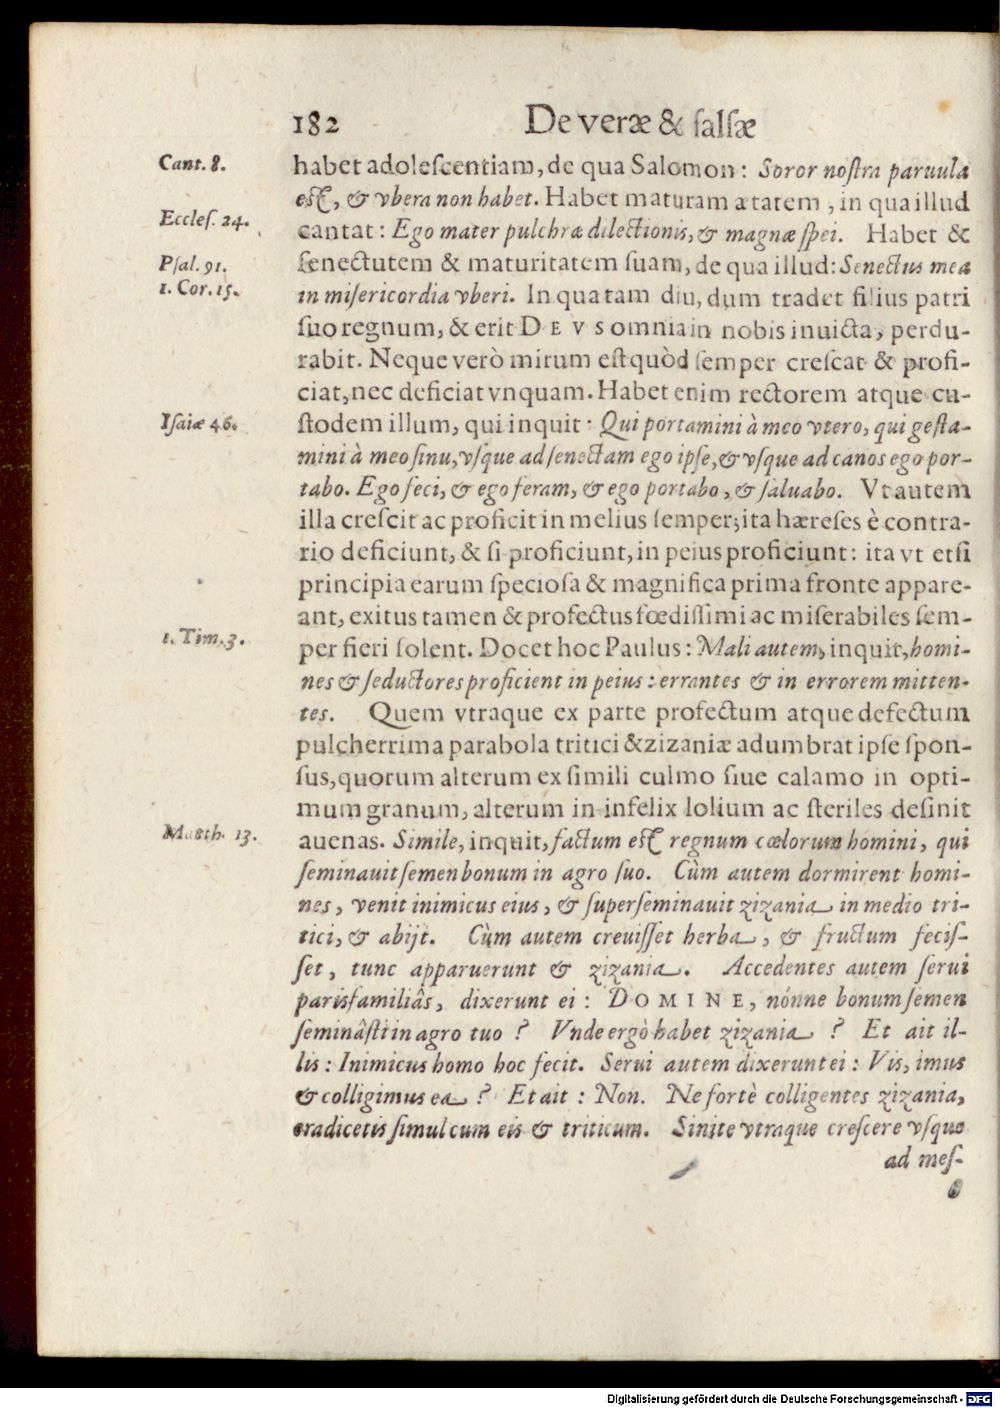 182 De veræ & falsæ
Cant. 8.
habet adolescentiam, de qua Salomon: Soror nostra paruula
est, & vbera non habet. Habet maturam ætatem, in qua illud
Eccles. 24.
cantat: Ego mater pulchræ dilectionis, & magnæ spei. Habet &
Psal. 91.
senectutem & maturitatem suam, de qua illud: Senectus mea
1. Cor. 15.
in misericordia vberi. In qua tam diu, dum tradet filius patri
suo regnum, & erit DEVS omnia in nobis inuicta, perdu-
rabit. Neque verò mirum est quòd semper crescat & profi-
ciat, nec deficiat vnquam. Habet enim rectorem atque cu-
Isaiæ 46.
stodem illum, qui inquit: Qui portamini à meo vtero, qui gesta-
mini à meo sinu, vsque ad senectam ego ipse, & vsque ad canos ego por-
tabo. Ego feci, & ego feram, & ego portabo, & saluabo. Vt autem
illa crescit ac proficit in melius semper; ita hæreses è contra-
rio deficiunt, & si proficiunt, in peius proficiunt: ita vt etsi
principia earum speciosa & magnifica prima fronte appare-
ant, exitus tamen & profectus fœdissimi ac miserabiles sem-
1. Tim. 3.
per fieri solent. Docet hoc Paulus: Mali autem, inquit, homi-
nes & seductores proficient in peius: errantes & in errorem mitten-
tes. Quem vtraque ex parte profectum atque defectum
pulcherrima parabola tritici & zizaniæ adumbrat ipse spon-
sus, quorum alterum ex simili culmo siue calamo in opti-
mum granum, alterum in infelix lolium ac steriles desinit
Matth. 13.
auenas. Simile, inquit, factum est regnum cœlorum homini, qui
seminauit semen bonum in agro suo. Cùm autem dormirent homi-
nes, venit inimicus eius, & superseminauit zizania in medio tri-
tici, & abijt. Cùm autem creuisset herba, & fructum fecis-
set, tunc apparuerunt & zizania. Accedentes autem serui
patrisfamiliâs, dixerunt ei: DOMINE, nónne bonum semen
seminâsti in agro tuo? Vnde ergò habet zizania? Et ait il-
lis: Inimicus homo hoc fecit. Serui autem dixerunt ei: Vis, imus
& colligimus ea? Et ait: Non. Ne fortè colligentes zizania,
eradicetis simul cum eis & triticum. Sinite vtraque crescere vsque
ad mes-
Digitalisierung gefördert durch die Deutsche Forschungsgemeinschaft - DFG